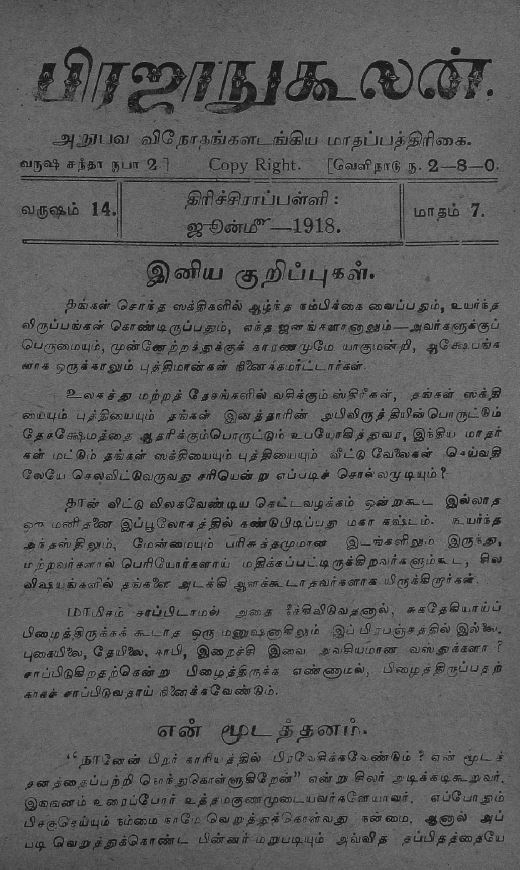 பிரஜாநுகூலன்.
அநுபவ விநோதங்களடங்கிய மாதப்பத்திரிகை.
வருஷ சந்தா ரூபா 2] Copy Right. [வெளிநாடு ரூ. 2—8—0.
வருஷம் 14.
திரிச்சிராப்பள்ளி :
ஜூன்மீ—1918.
மாதம் 7.
இனிய குறிப்புகள்.
தங்கள் சொந்த ஸக்திகளில் ஆழ்ந்த நம்பிக்கை வைப்பதும், உயர்ந்த
விருப்பங்கள் கொண்டிருப்பதும், எந்த ஜனங்களானாலும்—அவர்களுக்குப்
பெருமையும், முன்னேற்றத்துக்குக் காரணமுமே யாகுமன்றி, ஆக்ஷேபங்க
ளாக ஒருக்காலும் புத்திமான்கள் நினைக்கமாட்டார்கள்.
உலகத்து மற்றத் தேசங்களில் வசிக்கும் ஸ்திரீகள், தங்கள் ஸக்தி
யையும் புத்தியையும் தங்கள் இனத்தாரின் அபிவிருத்தியின்பொருட்டும்
தேசக்ஷேமத்தை ஆதரிக்கும்பொருட்டும் உபயோகித்துவர, இந்திய மாதர்
கள் மட்டும் தங்கள் ஸக்தியையும் புத்தியையும் வீட்டு வேலைகள் செய்வதி
லேயே செலவிட்டுவருவது சரியென்று எப்படிச் சொல்லமுடியும் ?
தான் விட்டு விலகவேண்டிய கெட்டவழக்கம் ஒன்றுகூட இல்லாத
ஒரு மனிதனை இப்பூலோகத்தில் கண்டுபிடிப்பது மகா கஷ்டம். உயர்ந்த
அந்தஸ்திலும், மேன்மையும் பரிசுத்தமுமான இடங்களிலும் இருந்து,
மற்றவர்களால் பெரியோர்களாய் மதிக்கப்பட்டிருக்கிறவர்களும்கூட, சில
விஷயங்களில் தங்களை அடக்கி ஆளக்கூடாதவர்களாக யிருக்கிறார்கள்.
மாமிசம் சாப்பிடாமல் அதை நீக்கிவிடுவதனால், சுகதேகியாய்ப்
பிழைத்திருக்கக் கூடாத ஒரு மனுஷனாகிலும் இப் பிரபஞ்சத்தில் இல்லை.
புகையிலை, தேயிலை, காபி, இறைச்சி இவை அவசியமான வஸ்துக்களா ?
சாப்பிடுகிறதற்கென்று பிழைத்திருக்க எண்ணாமல், பிழைத்திருப்பதற்
காகச் சாப்பிடுவதாய் நினைக்கவேண்டும்.
என் மூடத்தனம்.
“நானேன் பிறர் காரியத்தில் பிரவேசிக்கவேண்டும் ? என் மூடத்
தனத்தைப்பற்றி நொந்துகொள்ளுகிறேன்” என்று சிலர் அடிக்கடிகூறுவர்.
இங்ஙனம் உரைப்போர் உத்தமகுணமுடையவர்களேயாவர். எப்போதும்
பிசகுசெய்யும் நம்மை நாமே வெறுத்துக்கொள்வது நன்மை. ஆனால் அப்
படி வெறுத்துக்கொண்ட பின்னர் மறுபடியும் அவ்வித தப்பிதத்தையே